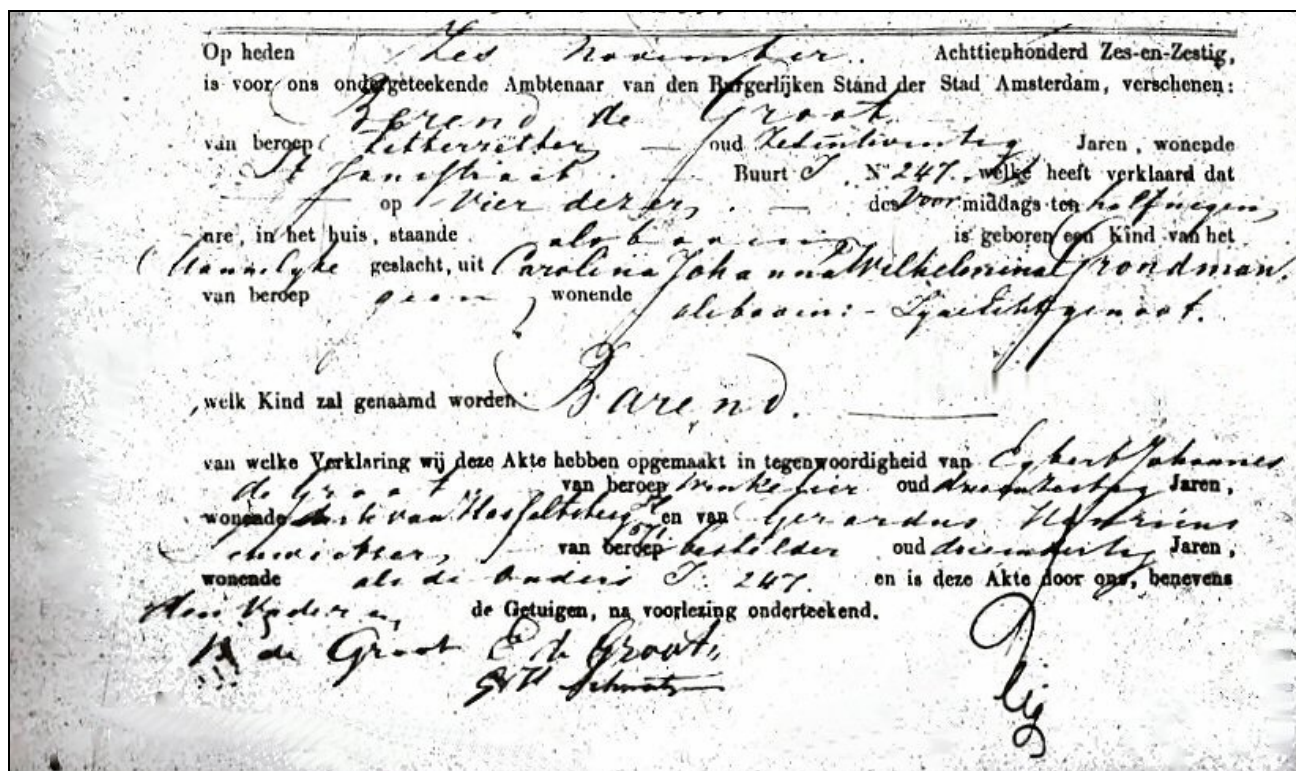 Op heden Zes November. Achttienhonderd Zes-en-Zestig,
is voor ons ondergeteekende Ambtenaar van den Burgerlijken Stand der Stad Amsterdam, verschenen:
Berend de Groot
van beroep Letterzetter — oud Zesentwintig Jaren, wonende
St Jansstraat. — Buurt J. No 247. welke heeft verklaard dat
— op Vier dezer, — des Voor middags ten halfnegen
ure, in het huis, staande als boven is geboren een Kind van het
Mannelyke geslacht, uit Carolina Johanna Wilhelmina Grondman.
van beroep geen, wonende
als boven:- Zyne Echtgenoot.
welk Kind zal genaamd worden Barend. —
van welke Verklaring wij deze Akte hebben opgemaakt in tegenwoordigheid van Egbert Johannes
de Groot van beroep Winkelier oud Jaren,
wonende van Hasseltsteeg en van Gerardus Henricus
van beroep besteller oud drieendertig Jaren,
wonende als de Ouders J. 247. en is deze Akte door ons, benevens
den Vader en de Getuigen, na voorlezing onderteekend.
B de Groot E de Groot